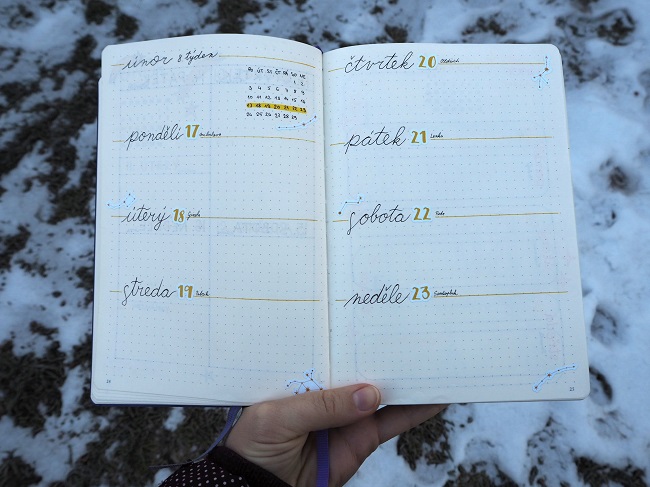 únor 8 týden
PO ÚT ST ČT PÁ SO NE
1 2
3 4 5 6 7 8 9
10 11 12 13 14 15 16
17 18 19 20 21 22 23
24 25 26 27 28 29
pondělí 17
úterý 18
středa 19
čtvrtek 20 Oldřich
pátek 21 Lenka
sobota 22 Petr
neděle 23 Svatopluk